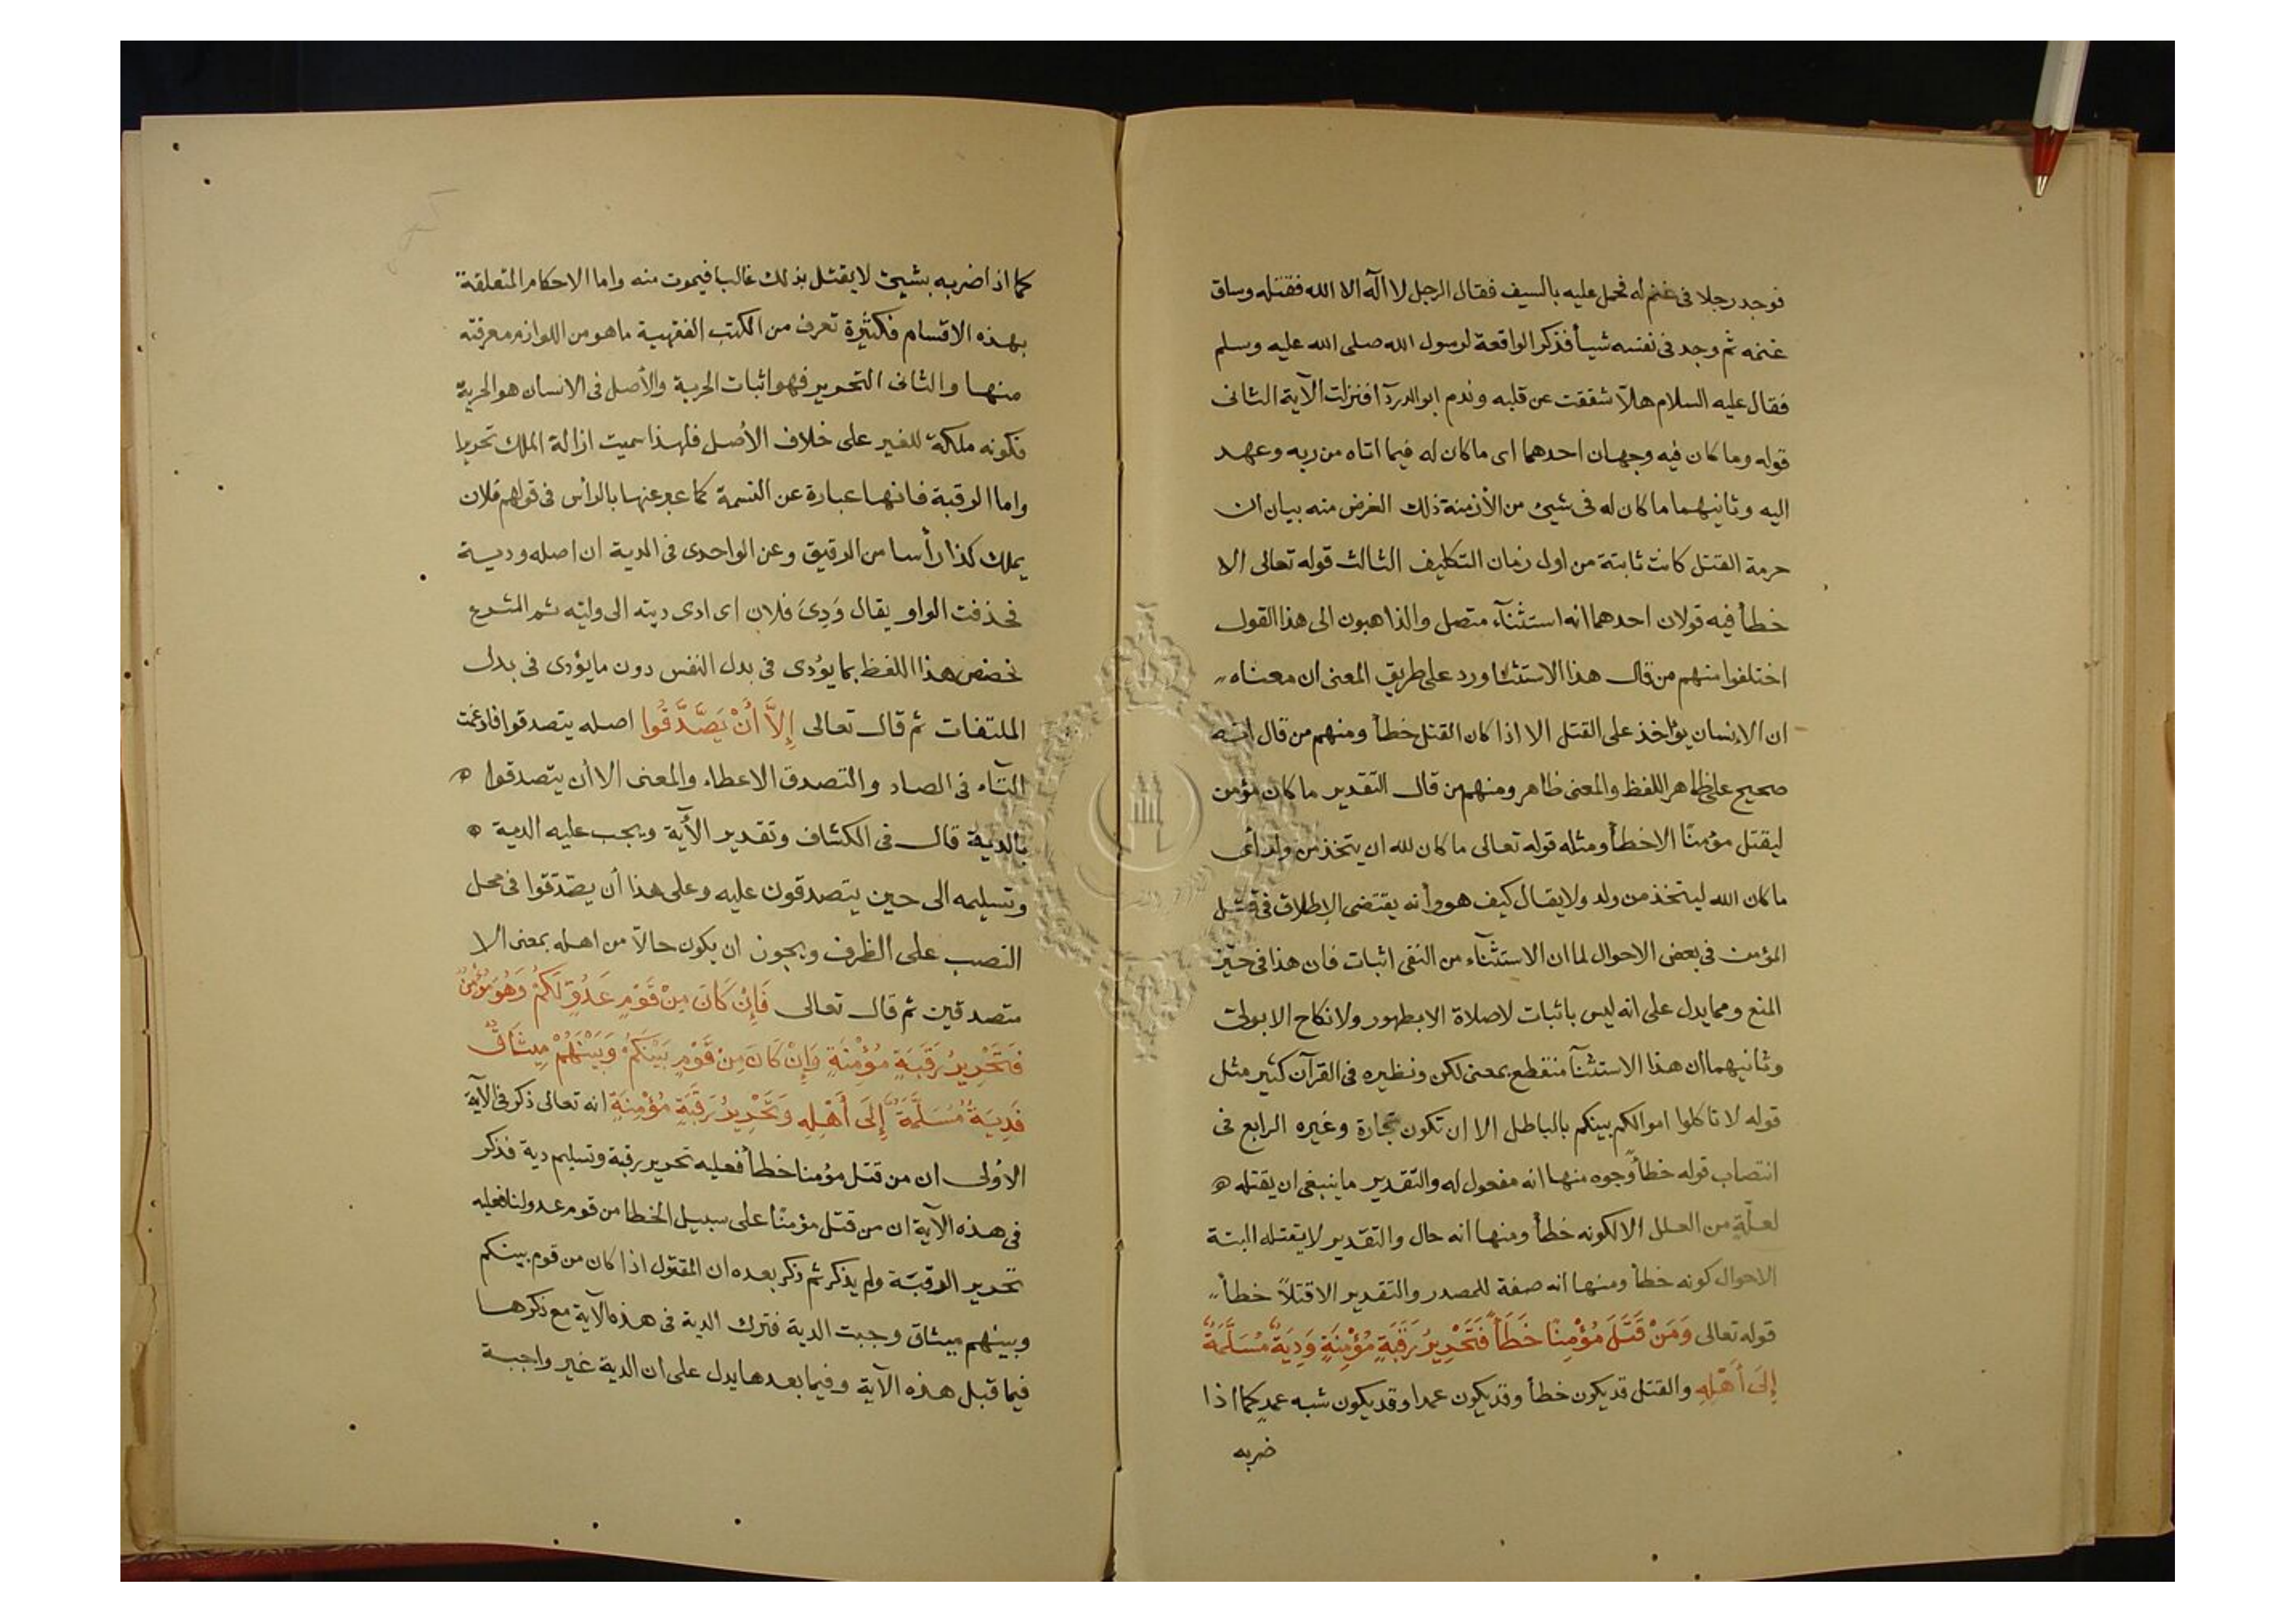 فوجد رجلا فى غنم له فحمل عليه بالسيف فقال الرجل لا اله الا الله فقتله وساق
غنمه ثم وجد فى نفسه شيأ فذكر الواقعة لرسول الله صلى الله عليه وسلم
فقال عليه السلام هلاّ شققت عن قلبه وندم ابو الدردآ افنزلت الآية الثانى
قوله وما كان فيه وجهان احدهما اى ما كان له فيما اتاه من ربه وعهد
اليه وثانيهما ما كان له فى شيئ من الأزمنة ذلك الغرض منه بيان ان
حرمة القتل كانت ثابتة من اول زمان التكليف الثالث قوله تعالى الا
خطأ فيه قولان احدهما انه استثنآء متصل والذاهبون الى هذا القول
اختلفوا منهم من قال هذا الاستثنا ورد على طريق المعنى ان معناه
ان الانسان يؤاخذ على القتل الا اذا كان القتل خطأ ومنهم من قال انه
صحيح على ظاهر اللفظ والمعنى ظاهر ومنهم من قال التقدير ما كان مؤمن
ليقتل مؤمنًا الا خطأ ومثله قوله تعالى ما كان لله ان يتخذ من ولد أى
ما كان الله ليتخذ من ولد ولا يقال كيف هو وأنه يقتضى الإطلاق فى قتل
المؤمن فى بعض الاحوال لما ان الاستثنآء من النفى اثبات فان هذا فى حيّز
المنع ومما يدل على انه ليس باثبات لا صلاة الا بطهور ولا نكاح الا بولى
وثانيهما ان هذا الاستثنآ منقطع بمعنى لكن ونظيره فى القرآن كثير مثل
قوله لا تاكلوا اموالكم بينكم بالباطل الا ان تكون تجارة وغيره الرابع فى
انتصاب قوله خطأً وجوه منها انه مفعول له والتقدير ما ينبغى ان يقتله
لعلّةٍ من العلل الا لكونه خطأ ومنها انه حال والتقدير لا يقتله البتة
الاحوال كونه خطأ ومنها انه صفة للمصدر والتقدير الا قتلاً خطأ
قوله تعالى وَمَنْ قَتَلَ مُؤْمِنًا خَطَأً فَتَحْرِيرُ رَقَبَةٍ مُؤْمِنَةٍ وَدِيَةٌ مُسَلَّمَةٌ
إِلَى أَهْلِهِ والقتل قد يكون خطأ وقد يكون عمدا وقد يكون شبه عمدٍ كما اذا
ضربه
كما اذا ضربه بشيئ لا يقتل بذلك غالبا فيموت منه واما الاحكام المتعلقة
بهذه الاقسام فكثيرة تعرف من الكتب الفقهية ما هو من اللوازم معرفته
منها والثانى التحرير فهو اثبات الحرية والأصل فى الانسان هو الحرية
فكونه ملكه للغير على خلاف الأصل فلهذا سميت ازالة الملك تحريرا
واما الرقبة فانها عبارة عن النسمة كما عبر عنها بالرأس فى قولهم فلان
يملك كذا رأسا من الرقيق وعن الواحدى فى الدية ان اصله ودية
فحذفت الواو يقال وَدِىَ فلان اى ادى ديته الى وليه ثم الشرع
خصص هذا اللفظ بما يؤدى فى بدل النفس دون ما يؤدى فى بدل
المتلفات ثم قال تعالى إِلَّا أَنْ يَصَّدَّقُوا اصله يتصدقوا فادغمت
التآء فى الصاد والتصدق الاعطاء والمعنى الا أن يتصدقوا
بالدية قال فى الكشاف وتقدير الأية ويجب عليه الدية
وتسليمه الى حين يتصدقون عليه وعلى هذا أن يصّدّقوا فى محل
النصب على الظرف ويجوز ان يكون حالاً من اهله بمعنى الا
متصدقين ثم قال تعالى فَإِنْ كَانَ مِنْ قَوْمٍ عَدُوٍّ لَكُمْ وَهُوَ مُؤْمِنٌ
فَتَحْرِيرُ رَقَبَةٍ مُؤْمِنَةٍ وَإِنْ كَانَ مِنْ قَوْمٍ بَيْنَكُمْ وَبَيْنَهُمْ مِيثَاقٌ
فَدِيَةٌ مُسَلَّمَةٌ إِلَى أَهْلِهِ وَتَحْرِيرُ رَقَبَةٍ مُؤْمِنَةٍ انه تعالى ذكر فى الآية
الأولى ان من قتل مؤمنا خطأ فعليه تحرير رقبة وتسليم دية فذكر
فى هذه الآية ان من قتل مؤمنًا على سبيل الخطا من قوم عدو لنا فعليه
تحرير الرقبة ولم يذكر ثم ذكر بعده ان المقتول اذا كان من قوم بينكم
وبينهم ميثاق وجبت الدية فترك الدية فى هذه الآية مع ذكرها
فيما قبل هذه الآية وفيما بعدها يدل على ان الدية غير واجبة